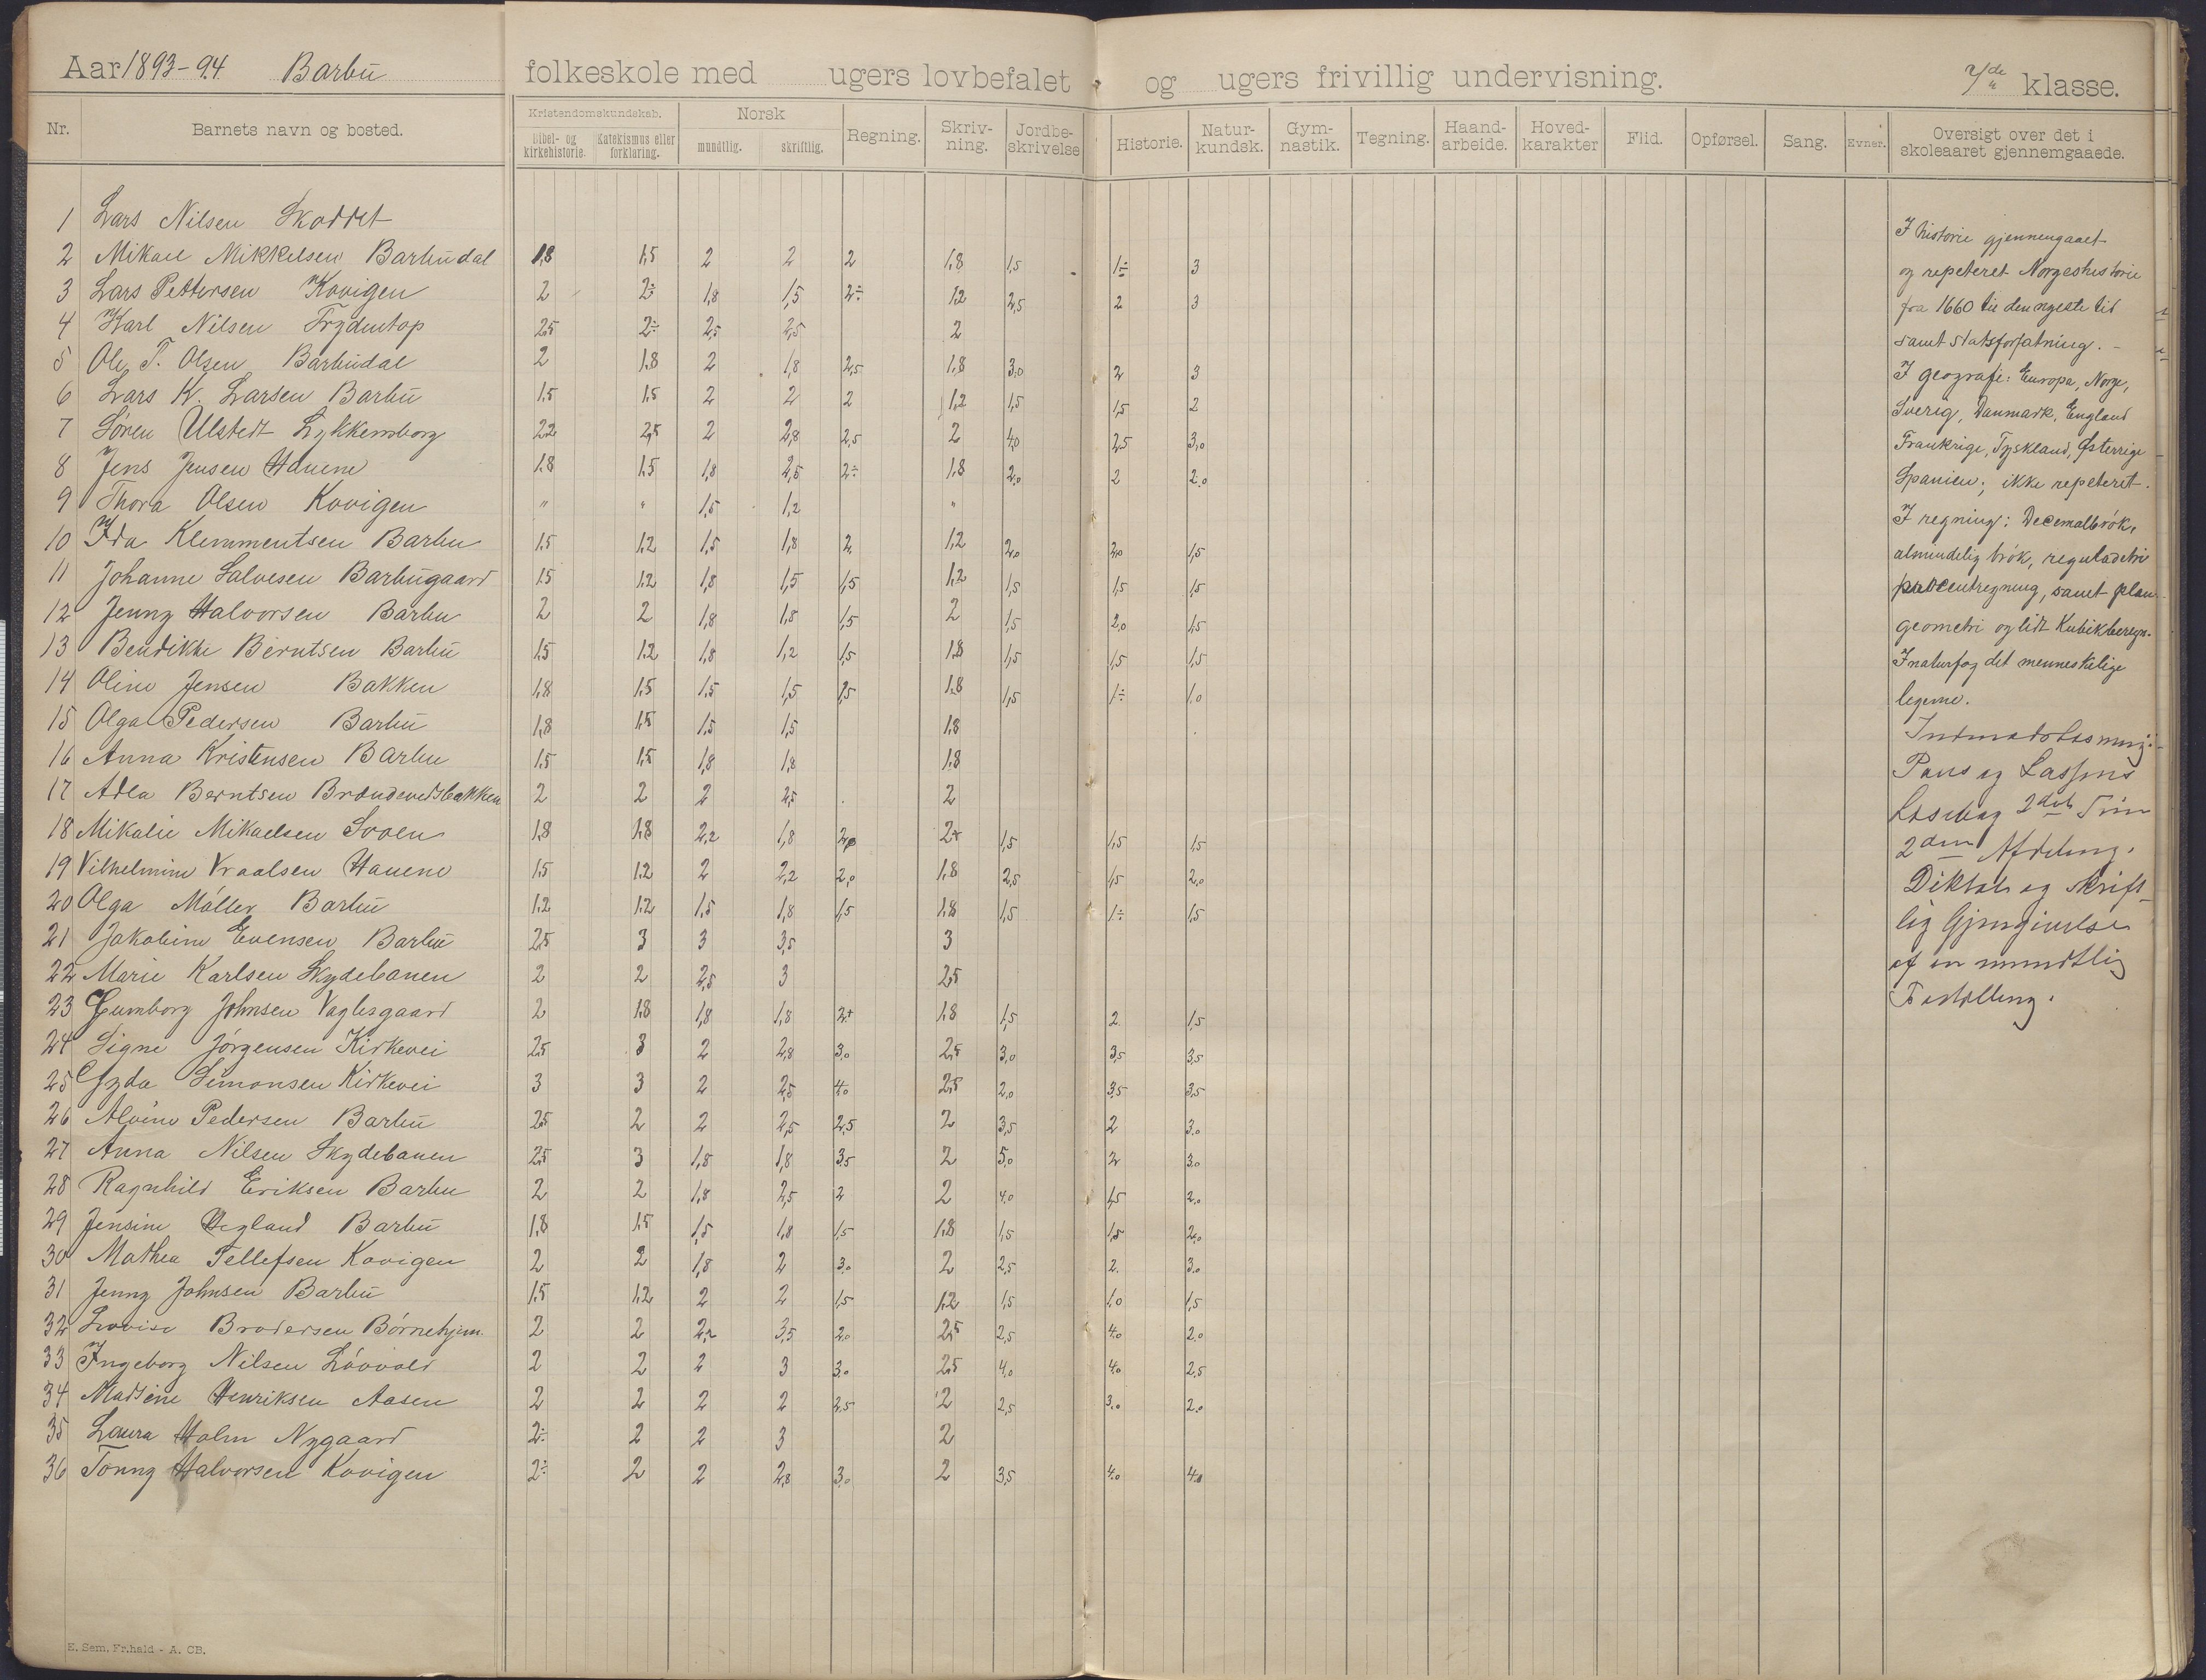 Aar 1893-94 Barbu folkeskole med ugers lovbefalet og ugers frivillig undervisning. 7de klasse.
Nr. Barnets navn og bosted. Kristendomskundskab. Bibel- og kirkehistorie. Katekismus eller forklaring. Norsk mundtlig. skriftlig. Regning. Skriv-ning. Jordbe-skrivelse Historie. Natur-kundsk. Gym-nastik. Tegning. Haand-arbeide. Hoved-karakter Flid. Opførsel. Sang. Evner. Oversigt over det i skoleaaret gjennemgaaede.
1 Lars Nilsen Skoddet
2 Mikael Mikkelsen Barbudal 1,8 1,5 2 2 2 1,8 1,5 1÷ 3
3 Lars Pettersen Kovigen 2 2÷ 1,8 1,5 2÷ 1,2 2,5 2 3
4 Karl Nilsen Frydentop 2,5 2÷ 2,5 2,5 2
5 Ole T. Olsen Barbudal 2 1,8 2 1,8 2,5 1,8 3,0 2 3
6 Lars K. Larsen Barbu 1,5 1,5 2 2 2 1,2 1,5 1,5 2
7 Søren Ulstedt Lykkensborg 2,2 2,5 2 2,8 2,5 2 4,0 2,5 3,0
8 Jens Jensen Hauene 1,8 1,5 1,8 2,5 2÷ 1,8 2,0 2 2,0
9 Thora Olsen Kovigen " " 1,5 1,2 "
10 Ida Klemmentsen Barbu 1,5 1,2 1,5 1,8 2 1,2 2,0 2,0 1,5
11 Johanne Salvesen Barbugaard 1,5 1,2 1,8 1,5 1,5 1,2 1,5 1,5 1,5
12 Jenny Halvorsen Barbu 2 2 1,8 1,8 1,5 2 1,5 2,0 1,5
13 Bendikke Berntsen Barbu 1,5 1,2 1,8 1,2 1,5 1,8 1,5 1,5 1,5
14 Oline Jensen Bakken 1,8 1,5 1,5 1,5 1,5 1,8 1,5 1÷ 1,0
15 Olga Pedersen Barbu 1,8 1,5 1,5 1,5 1,8
16 Anna Kristensen Barbu 1,5 1,5 1,8 1,8 1,8
17 Adla Berntsen Brændevedsbakken 2 2 2 2,5 2
18 Mikalie Mikaelsen Sroen 1,8 1,8 2,2 1,8 2,0 2+ 1,5 1,5 1,5
19 Vilhelmine Vraalsen Hauene 1,5 1,2 2 2,2 2,0 1,8 2,5 1,5 2,0
20 Olga Møller Barbu 1,2 1,2 1,5 1,8 1,5 1,8 1,5 1÷ 1,5
21 Jakobine Evensen Barbu 2,5 3 3 3,5 3
22 Marie Karlsen Skydebanen 2 2 2,5 3 2,5
23 Gumborg Johnsen Vaglesgaard 2 1,8 1,8 1,8 2+ 1,8 1,5 2 1,5
24 Signe Jørgensen Kirkevei 2,5 3 2 2,8 3,0 2,5 3,0 3,5 3,5
25 Gyda Simonsen Kirkevei 3 3 2 2,5 4,0 2,5 2,0 3,5 3,5
26 Alvine Pedersen Barbu 2,5 2 2 2,5 2,5 2 3,5 2 3,0
27 Anna Nilsen Skydebanen 2,5 3 1,8 1,8 3,5 2 5,0 2 3,0
28 Ragnhild Eriksen Barbu 2 2 1,8 2,5 2 2 4,0 1,5 2,0
29 Jensine Hegland Barbu 1,8 1,5 1,5 1,8 1,5 1,8 1,5 1,5 2,0
30 Mathea Tellefsen Kovigen 2 2 1,8 2 3,0 2 2,5 2. 3,0
31 Jenny Johnsen Barbu 1,5 1,2 2 2 1,5 1,2 1,5 1,0 1,5
32 Lovise Brodersen Børnehjem. 2 2 2,2 3,5 2,0 2,5 2,5 4,0 2,0
33 Ingeborg Nilsen Løvvold 2 2 2 3 3,0 2,5 4,0 4,0 2,5
34 Madsine Henriksen Aasen 2 2 2 2 2,5 2 2,5 3,0 2,0
35 Laura Holm Nygaard 2÷ 2 2 3 2
36 Tonny Halvorsen Kovigen 2÷ 2 2 2,8 3,0 2 3,5 4,0 4,0
I historie gjennemgaaet
og repeteret Norgeshistorie
fra 1660 til den nyeste tid
samt statsforfatning. -
I geografi: Europa, Norge,
Sverig, Danmark, England
Frankrige, Tyskland, Østerrige
Spanien; ikke repeteret.
I regning: Decemalbrøk,
almindelig brøk, reguladetri
procentregning, samt plan
geometri og lidt Kubikberegn.
I naturfag det menneskelige
legeme.
Indenadslæsning:
Pauss og Lassens
Læsebog 2det Trin
2den Afdeling.
Diktat og skrift-
lig Gjengivelse
af en mundtlig
Fortælling.
E. Sem, Fr.hald - A. CB.